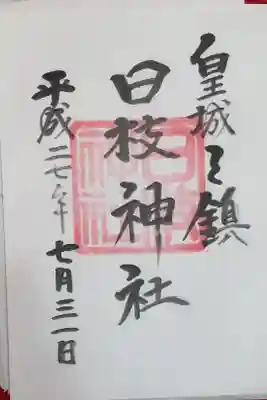 皇城之鎮
日枝神社
平成二七年七月三一日